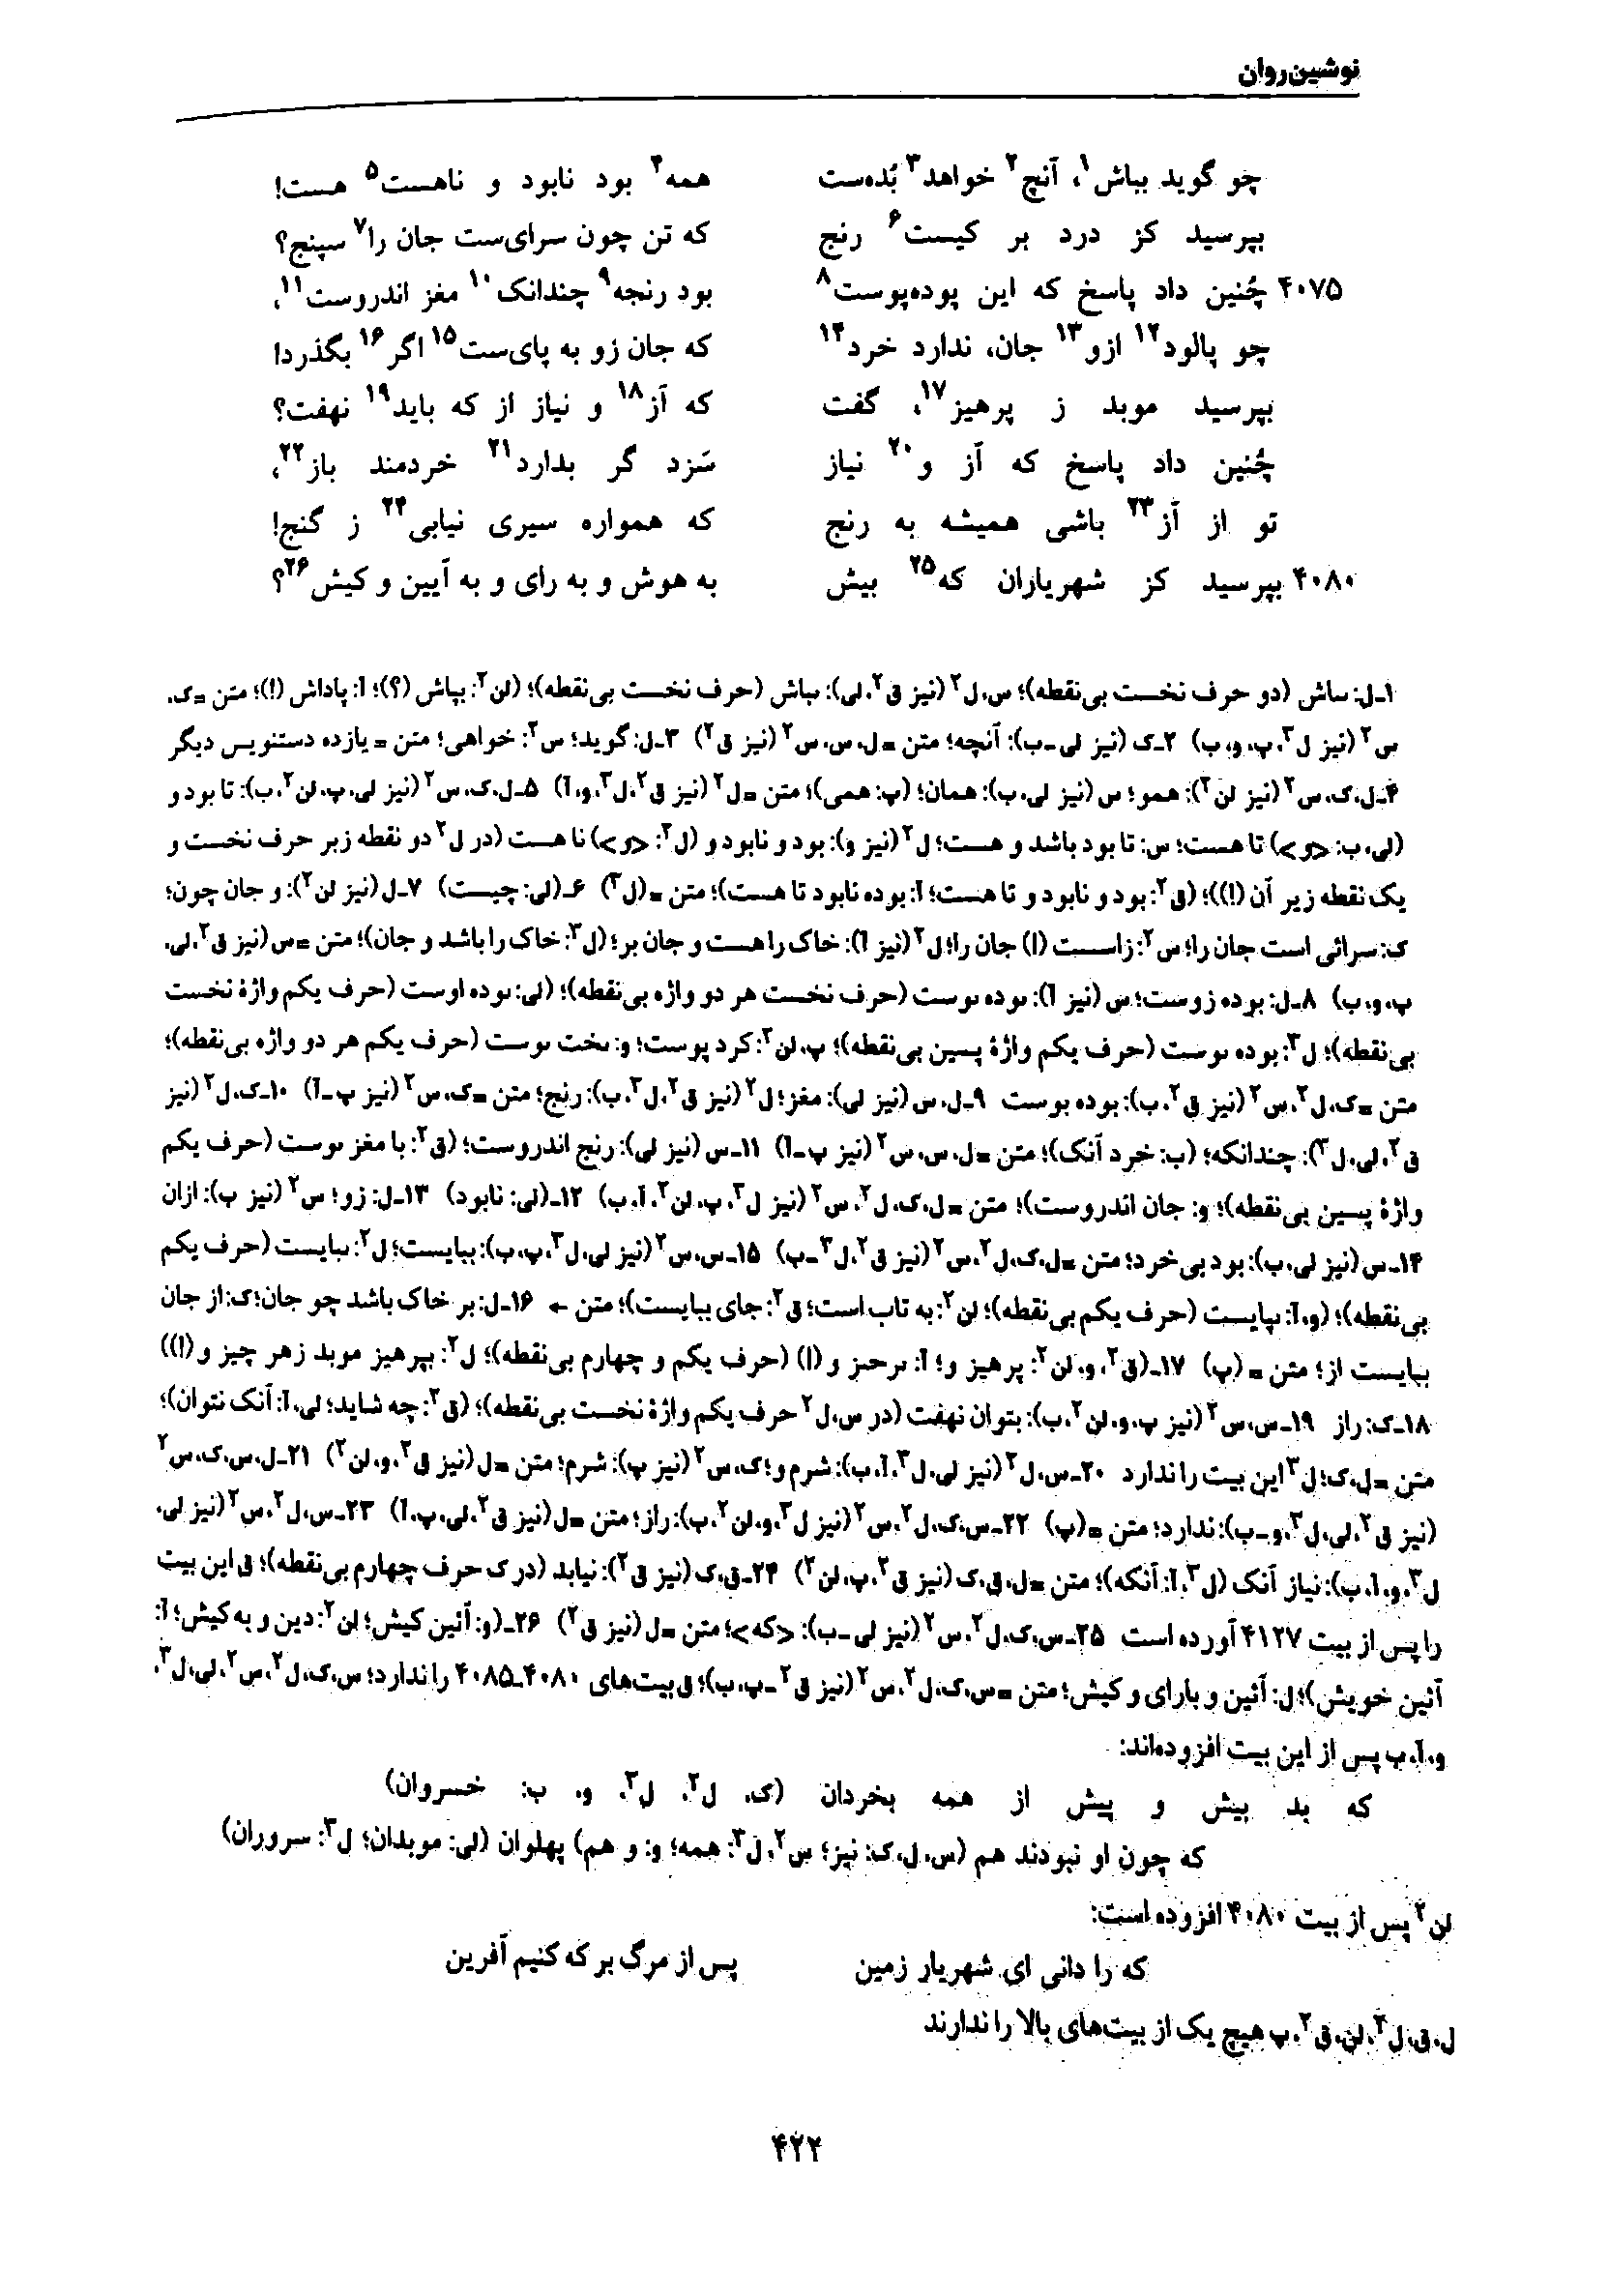 نوشین‌روان
چو گوید بباش۱، آنچ۲ خواهد۳ بُده‌ست همه۴ بود نابود و ناهست۵ هست!
بپرسید کز درد بر کیست۶ رنج که تن چون سرای‌ست جان را۷ سپنج؟
۴۰۷۵ چُنین داد پاسخ که این پوده‌پوست۸ بود رنجه۹ چندانک۱۰ مغز اندروست۱۱،
چو پالود۱۲ ازو۱۳ جان، ندارد خرد۱۴ که جان زو به پای‌ست۱۵ اگر۱۶ بگذرد!
بپرسید موبد ز پرهیز۱۷، گفت که آز۱۸ و نیاز از که باید۱۹ نهفت؟
چُنین داد پاسخ که آز و۲۰ نیاز سَزد گر بدارد۲۱ خردمند باز۲۲،
تو از آز۲۳ باشی همیشه به رنج که همواره سیری نیابی۲۴ ز گنج!
۴۰۸۰ بپرسید کز شهریاران که۲۵ بیش به هوش و به رای و به آیین و کیش۲۶؟
۱ـ ل: ٮىاش (دو حرف نخست بی‌نقطه)؛ س، ل۲ (نیز ق۲، لی): ٮباش (حرف نخست بی‌نقطه)؛ (لن۲: بپاش (؟)؛ آ: پاداش (!)؛ متن = ک،
س۲ (نیز ل۳، پ، و، ب) ۲ـ ک (نیز لی ـ ب): آنچه؛ متن = ل، س، س۲ (نیز ق۲) ۳ـ ل: گوید؛ س۲: خواهی؛ متن = یازده دستنویس دیگر
۴ـ ل، ک، س۲ (نیز لن۲): همو؛ س (نیز لی، ب): همان؛ (پ: همی)؛ متن = ل۲ (نیز ق۲، ل۳، و، آ) ۵ـ ل، ک، س۲ (نیز لی، پ، لن۲، ب): تا بود و
(لی، ب: <و>) تا هست؛ س: تا بود باشد و هست؛ ل۲ (نیز و): بود و نابود و (ل۲: <و>) نا هست (در ل۲ دو نقطه زبر حرف نخست و
یک نقطه زیر آن (!))؛ (ق۲: بود و نابود و تا هست؛ آ: بوده نابود تا هست)؛ متن = (ل۳) ۶ـ (لی: چیست) ۷ـ ل (نیز لن۲): و جان چون؛
ک: سرائی است جان را؛ س۲: زاست (!) جان را؛ ل۲ (نیز آ): خاک را هست و جان بر؛ (ل۳: خاک را باشد و جان)؛ متن = س (نیز ق۲، لی،
پ، و، ب) ۸ـ ل: بوده زوست؛ س (نیز آ): ٮوده ٮوست (حرف نخست هر دو واژه بی‌نقطه)؛ (لی: ٮوده اوست (حرف یکم واژهٔ نخست
بی‌نقطه)؛ ل۳: بوده ٮوست (حرف یکم واژهٔ پسین بی‌نقطه)؛ پ، لن۲: کرد پوست؛ و: ٮخت ٮوست (حرف یکم هر دو واژه بی‌نقطه)؛
متن = ک، ل۲، س۲ (نیز ق۲، ب): بوده بوست ۹ـ ل، س (نیز لی): مغز؛ ل۲ (نیز ق۲، ل۳، ب): رنج؛ متن = ک، س۲ (نیز پ ـ آ) ۱۰ـ ک، ل۲ (نیز
ق۲، لی، ل۳): چندانکه؛ (ب: خرد آنک)؛ متن = ل، س، س۲ (نیز پ ـ آ) ۱۱ـ س (نیز لی): رنج اندروست؛ (ق۲: با مغز ٮوست (حرف یکم
واژهٔ پسین بی‌نقطه)؛ و: جان اندروست)؛ متن = ل، ک، ل۲، س۲ (نیز ل۳، پ، لن۲، آ، ب) ۱۲ـ (لی: نابود) ۱۳ـ ل: زو؛ س۲ (نیز پ): ازان
۱۴ـ س (نیز لی، ب): بود بی خرد؛ متن = ل، ک، ل۲، س۲ (نیز ق۲، ل۳ ـ پ) ۱۵ـ س، س۲ (نیز لی، ل۳، پ، ب): ببایست؛ ل۲: ٮبایست (حرف یکم
بی‌نقطه)؛ (و، آ: ٮپایست (حرف یکم بی‌نقطه)؛ لن۲: به تاب است؛ ق۲: جای ببایست)؛ متن ← ۱۶ـ ل: بر خاک باشد چو جان؛ ک: از جان
ببایست از؛ متن = (پ) ۱۷ـ (ق۲، و، لن۲: پرهیز و؛ آ: ٮرحٮز و (!) (حرف یکم و چهارم بی‌نقطه)؛ ل۲: بپرهیز موبد زهر چیز و (!))
۱۸ـ ک: راز ۱۹ـ س، س۲ (نیز پ، و، لن۲، ب): بتوان نهفت (در س، ل۲ حرف یکم واژهٔ نخست بی‌نقطه)؛ (ق۲: چه شاید؛ لی، آ: آنک نتوان)؛
متن = ل، ک؛ ل۳ این بیت را ندارد ۲۰ـ س، ل۲ (نیز لی، ل۳، آ، ب): شرم و؛ ک، س۲ (نیز پ): شرم؛ متن = ل (نیز ق۲، و، لن۲) ۲۱ـ ل، س، ک، س۲
(نیز ق۲، لی، ل۳، و ـ ب): ندارد؛ متن = (پ) ۲۲ـ س، ک، ل۲، س۲ (نیز ل۳، و، لن۲، ب): راز؛ متن = ل (نیز ق۲، لی، پ، آ) ۲۳ـ س، ل۲، س۲ (نیز لی،
ل۳، و، آ، ب): نیاز آنک (ل۳، آ: آنکه)؛ متن = ل، ق، ک (نیز ق۲، پ، لن۲) ۲۴ـ ق، ک (نیز ق۲): نیابد (در ک حرف چهارم بی‌نقطه)؛ ق این بیت
را پس از بیت ۴۱۲۷ آورده است ۲۵ـ س، ک، ل۲، س۲ (نیز لی ـ ب): <که>؛ متن = ل (نیز ق۲) ۲۶ـ (و: آئین کیش؛ لن۲: دین و به کیش؛ آ:
آئین خویش)؛ ل: آئین و بارای و کیش؛ متن = س، ک، ل۲، س۲ (نیز ق۲ ـ پ، ب)؛ ق بیت‌های ۴۰۸۰ـ۴۰۸۵ را ندارد؛ س، ک، ل۲، س۲، لی، ل۳،
و، آ، ب پس از این بیت افزوده‌اند:
که بد بیش و پیش از همه بخردان (ک، ل۲، ل۳، و، ب: خسروان)
که چون او نبودند هم (س، ل، ک: نیز؛ س۲، ل۳: همه؛ و: و هم) پهلوان (لی: موبدان؛ ل۳: سروران)
لن۲ پس از بیت ۴۰۸۰ افزوده است:
که را دانی ای شهریار زمین پس از مرگ بر که کنیم آفرین
ل، ق، ل۳، لن، ق۲، پ هیچ یک از بیت‌های بالا را ندارند
۴۲۲